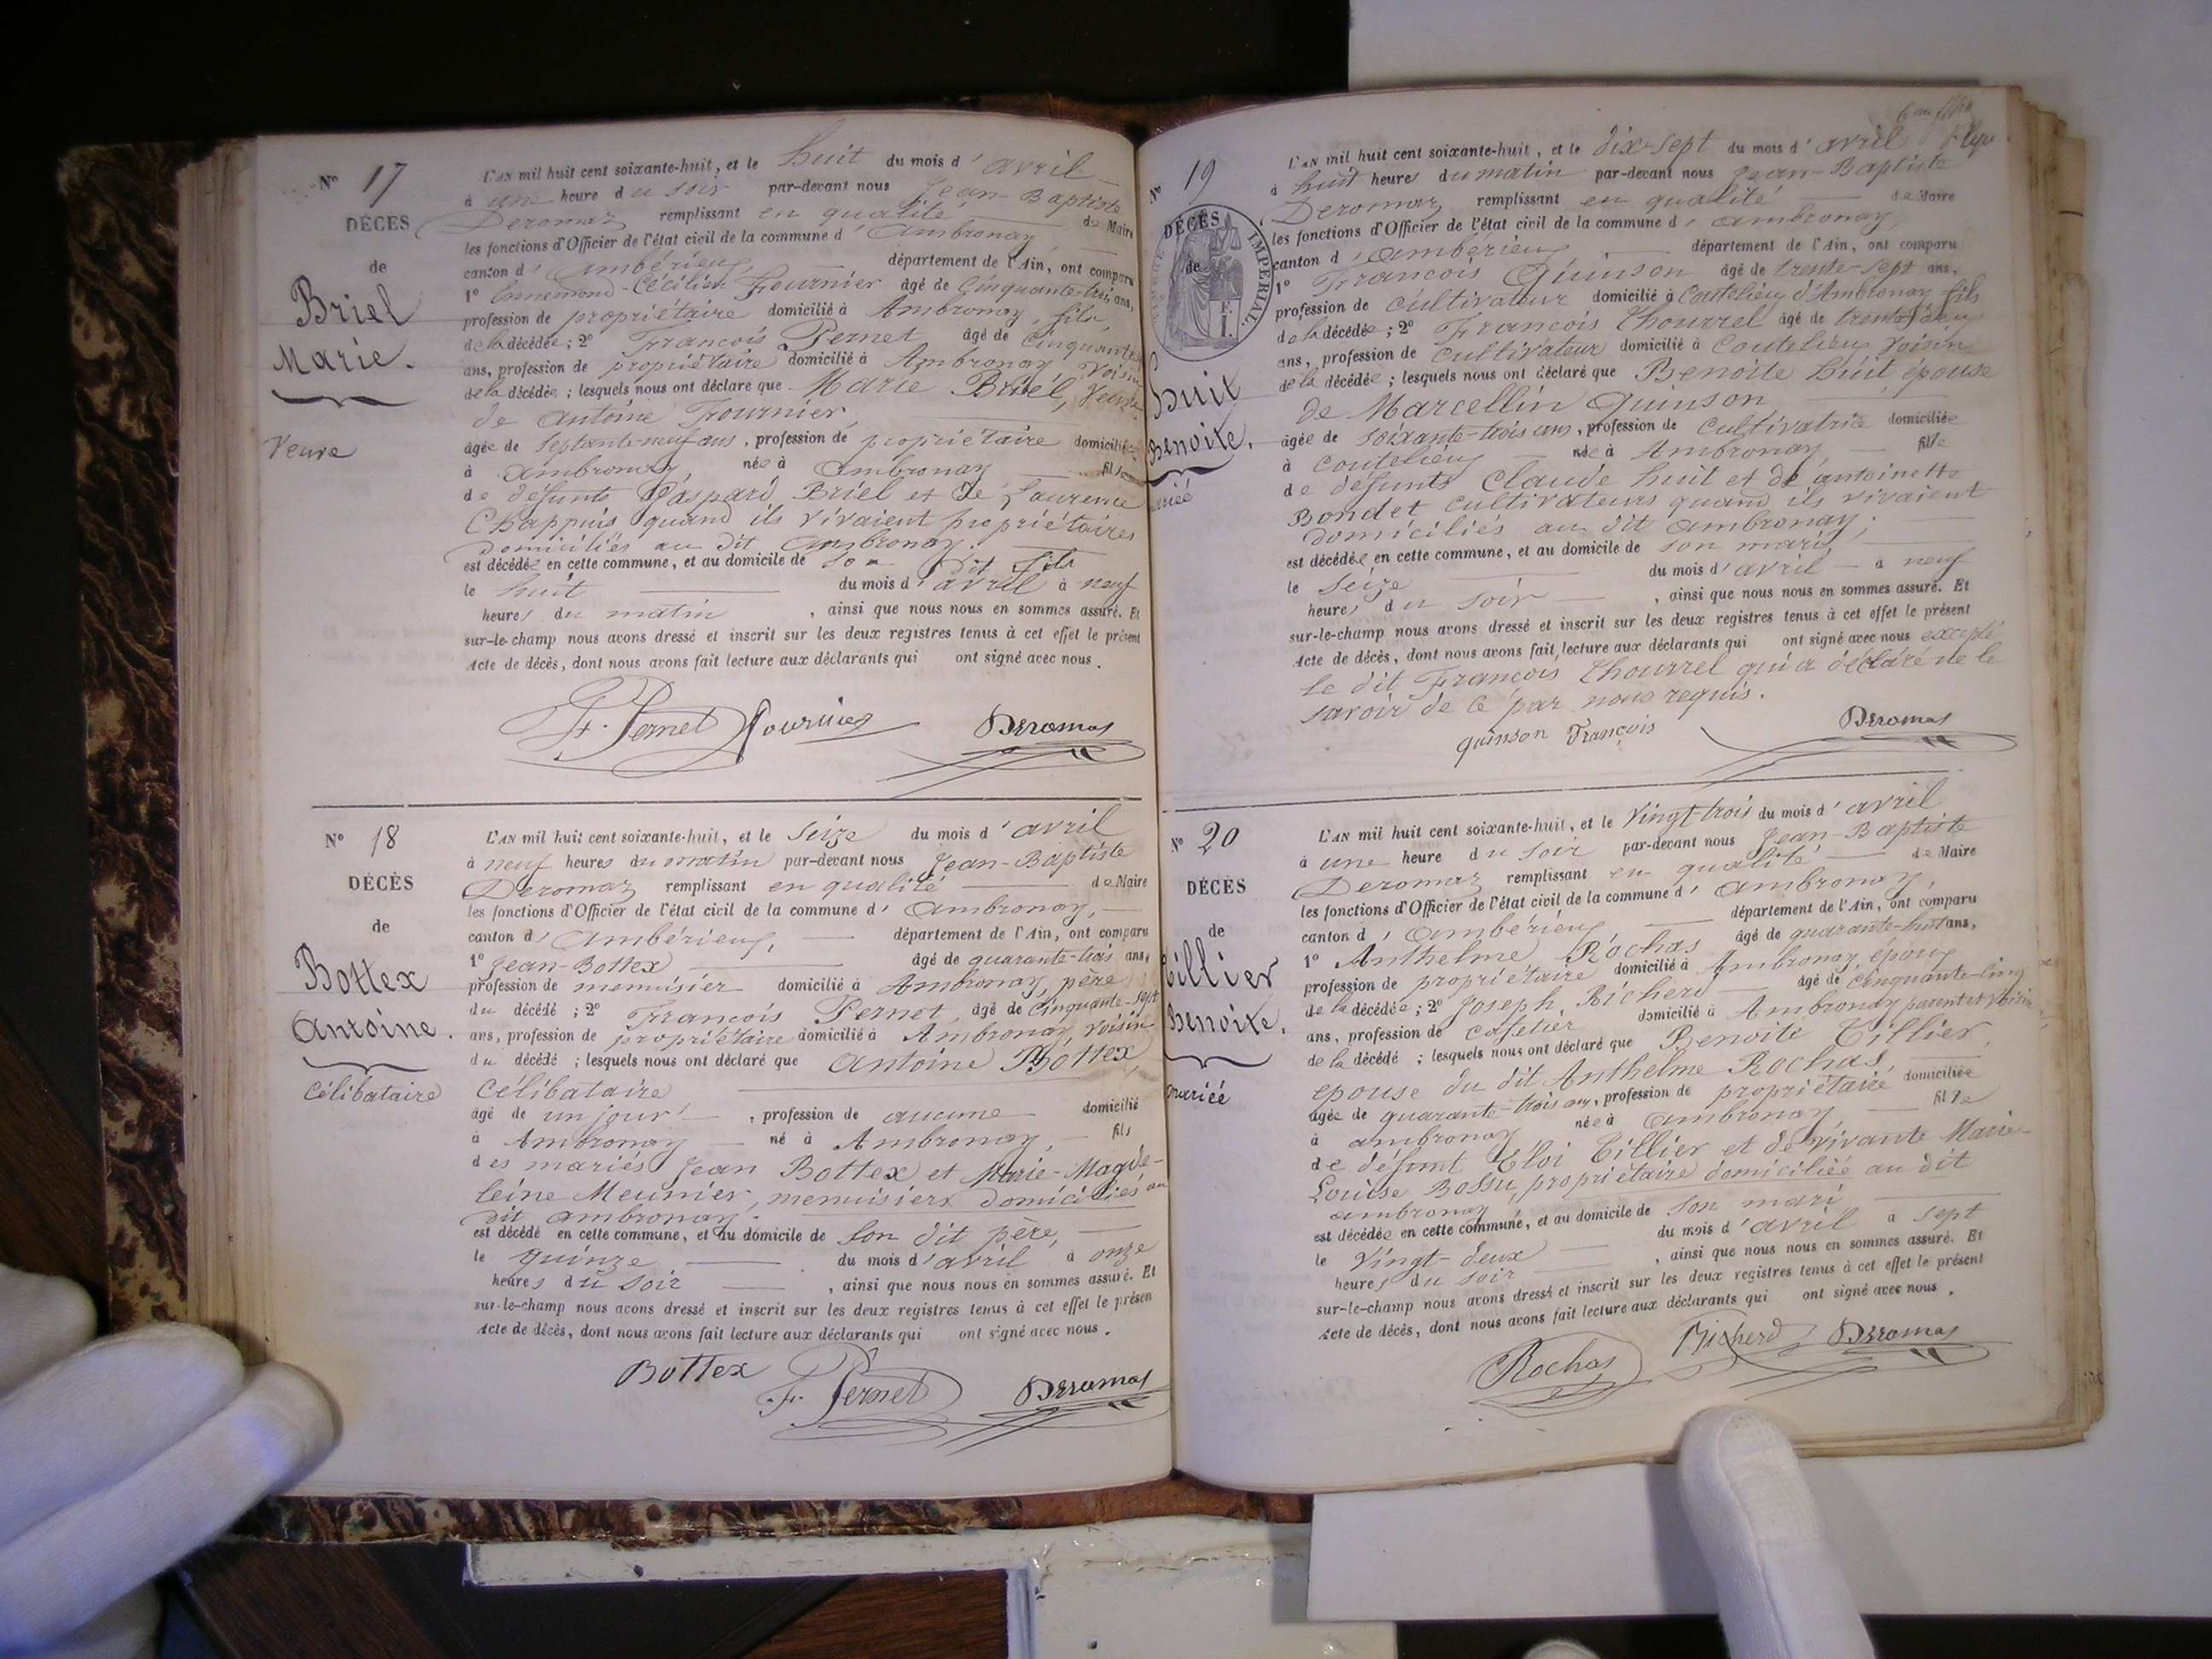 N° 17
DÉCÈS
de
Briel
Marie.
Veuve
L'AN mil huit cent soixante-huit, et le huit du mois d'avril
à une heure du soir par-devant nous Jean-Baptiste
Deromas remplissant en qualité de Maire
les fonctions d'Officier de l'état civil de la commune d'Ambronay,
canton d'Ambérieux, département de l'Ain, ont comparu
1° Ennemond-Cécilien Fournier âgé de cinquante-trois ans,
profession de propriétaire domicilié à Ambronay, fils
de la décédée; 2° François Pernet âgé de cinquante
ans, profession de propriétaire domicilié à Ambronay voisin
de la décédée; lesquels nous ont déclaré que Marie Briel, Veuve
de Antoine Fournier,
âgée de septante-neuf ans, profession de propriétaire domiciliée
à Ambronay, née à Ambronay fille
de défunts Gaspard Briel et de Laurence
Chappuis quand ils vivaient propriétaires
domiciliés au dit Ambronay.
est décédée en cette commune, et au domicile de son dit fils
le huit du mois d'avril à neuf
heures du matin, ainsi que nous nous en sommes assuré. Et
sur-le-champ nous avons dressé et inscrit sur les deux registres tenus à cet effet le présent
Acte de décès, dont nous avons fait lecture aux déclarants qui ont signé avec nous.
F. Pernet Fournier Deromas
N° 18
DÉCÈS
de
Bottex
Antoine.
Célibataire
L'AN mil huit cent soixante-huit, et le seize du mois d'avril
à neuf heures du matin par-devant nous Jean-Baptiste
Deromas remplissant en qualité de Maire
les fonctions d'Officier de l'état civil de la commune d'Ambronay,
canton d'Ambérieux, département de l'Ain, ont comparu
1° Jean-Bottex âgé de quarante-trois ans,
profession de menuisier domicilié à Ambronay, père
du décédé; 2° François Pernet, âgé de cinquante-sept
ans, profession de propriétaire domicilié à Ambronay, voisin
du décédé; lesquels nous ont déclaré que Antoine Bottex,
Célibataire
âgé de un jour, profession de aucune domicilié
à Ambronay né à Ambronay, fils
des mariés Jean Bottex et Marie-Magde-
leine Meunier, menuisiers domiciliés au
dit Ambronay.
est décédé en cette commune, et au domicile de son dit père,
le quinze du mois d'avril à onze
heures du soir, ainsi que nous nous en sommes assuré. Et
sur-le-champ nous avons dressé et inscrit sur les deux registres tenus à cet effet le présen
Acte de décès, dont nous avons fait lecture aux déclarants qui ont signé avec nous.
Bottex F. Pernet Deromas
N° 19
DÉCÈS
de
IMPÉRIAL.
F.
1.
huit
Benoite.
mariée
L'AN mil huit cent soixante-huit, et le dix-sept du mois d'avril
à huit heures du matin par-devant nous Jean-Baptiste
Deromas remplissant en qualité de Maire
les fonctions d'Officier de l'état civil de la commune d'Ambronay,
canton d'Ambérieux département de l'Ain, ont comparu
1° François Quinson âgé de trente-sept ans,
profession de cultivateur domicilié à Coutelieu d'Ambronay, fils
de la décédée; 2° François Chourrel âgé de trente deux
ans, profession de cultivateur domicilié à Coutelieux voisin
de la décédée; lesquels nous ont déclaré que Benoite huit épouse
de Marcellin Quinson
âgée de soixante-trois ans, profession de cultivatrice domiciliée
à Coutelieux née à Ambronay fille
de défunts Claude huit et de antoinette
Bondet cultivateurs quand ils vivaient
domiciliés au dit Ambronay;
est décédée en cette commune, et au domicile de son mari,
le seize du mois d'avril à neuf
heures du soir, ainsi que nous nous en sommes assuré. Et
sur-le-champ nous avons dressé et inscrit sur les deux registres tenus à cet effet le présent
Acte de décès, dont nous avons fait lecture aux déclarants qui ont signé avec nous excepté
le dit François Chourrel qui a déclaré ne le
savoir de ce par nous requis.
quinson François Deromas
N° 20
DÉCÈS
de
Tillier
Benoite.
mariée
L'AN mil huit cent soixante-huit, et le vingt-trois du mois d'avril
à une heure du soir par-devant nous Jean-Baptiste
Deromas remplissant en qualité de Maire
les fonctions d'Officier de l'état civil de la commune d'Ambronay,
canton d'Ambérieux département de l'Ain, ont comparu
1° Anthelme Rochas âgé de quarante-huit ans,
profession de propriétaire domicilié à Ambronay, époux
de la décédée; 2° Joseph Richerd âgé de cinquante-cinq
ans, profession de cafetier domicilié à Ambronay parent et voisin
de la décédé; lesquels nous ont déclaré que Benoite Tillier,
épouse du dit Anthelme Rochas,
âgée de quarante-trois ans, profession de propriétaire domiciliée
à ambronay née à Ambronay fille
de défunt Eloi Tillier et de vivante Marie-
Louise Bossu, propriétaire domiciliée au dit
ambronay
est décédée en cette commune, et au domicile de son mari
le vingt-deux du mois d'avril à sept
heures du soir, ainsi que nous nous en sommes assuré. Et
sur-le-champ nous avons dressé et inscrit sur les deux registres tenus à cet effet le présent
Acte de décès, dont nous avons fait lecture aux déclarants qui ont signé avec nous.
Rochas Richerd Deromas